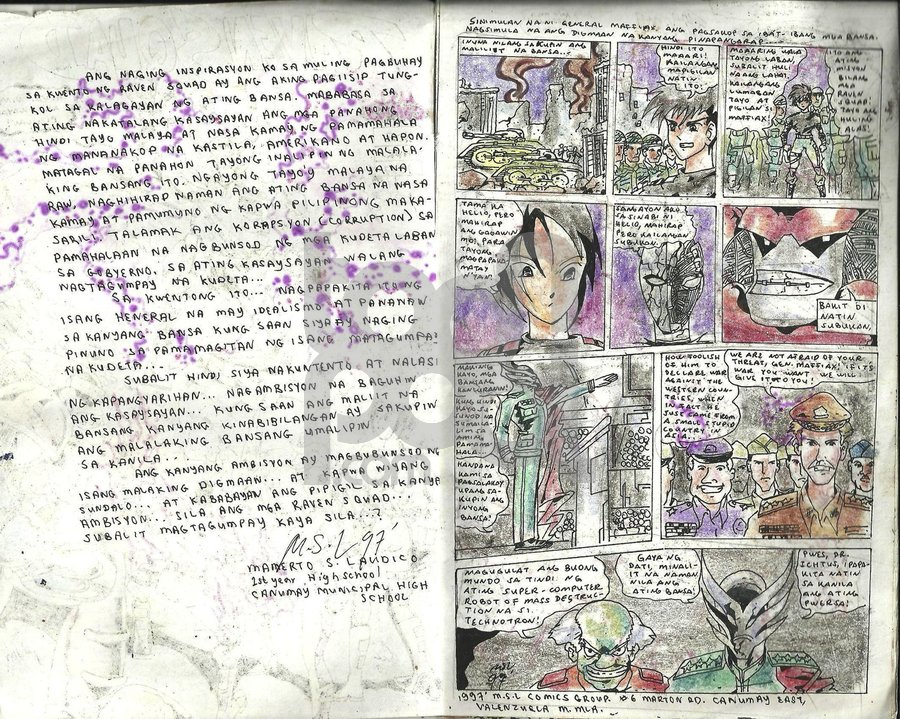 ANG NAGING INSPIRASYON KO SA MULING PAGBUHAY
SA KWENTO NG RAVEN SQUAD AY ANG AKING PAGIISIP TUNG-
KOL SA KALAGAYAN NG ATING BANSA. MABABASA SA
ATING NAKATALANG KASAYSAYAN ANG MGA PANAHONG
HINDI TAYO MALAYA AT NASA KAMAY NG PAMAMAHALA
NG MANANAKOP NA KASTILA, AMERIKANO AT HAPON.
MATAGAL NA PANAHON TAYONG INALIPIN NG MALALA-
KING BANSANG ITO. NGAYONG TAYO'Y MALAYA NA
RAW, NAGHIHIRAD NAMAN ANG ATING BANSA NA NASA
KAMAY AT PAMUMUNO NG KAPWA PILIPINONG MAKA-
SARILI. TALAMAK ANG KORAPSYON (CORRUPTION) SA
PAMAHALAAN NA NAGBUNSOD NG MGA KUDETA LABAN
SA GOBYERNO. SA ATING KASAYSAYAN WALANG
NAGTAGUMPAY NA KUDETA...
SA KWENTONG ITO... NAGPAPAKITA ITO NG
ISANG HENERAL NA MAY IDEALISMO AT PANANAW
SA KANYANG BANSA KUNG SAAN SIYA'Y NAGING
PINUNO SA PAMAMAGITAN NG ISANG MATAGUMPAY
NA KUDETA...
SUBALIT HINDI SIYA NAKUNTENTO, AT NALASI
NG KAPANGYARIHAN... NAGAMBISYON NA BAGUHIN
ANG KASAYSAYAN... KUNG SAAN ANG MALIIT NA
BANSANG KANYANG KINABIBILANGAN AY SAKUPIN
ANG MALALAKING BANSANG UMALIPIN
SA KANILA...
ANG KANYANG AMBISYON AY MAGBUBUNSOD NG
ISANG MALAKING DIGMAAN... AT KAPWA NIYANG
SUNDALO... AT KABABAYAN ANG PIPIGIL SA KANYA
AMBISYON... SILA ANG MGA RAVEN SQUAD...
SUBALIT MAGTAGUMPAY KAYA SILA...?
M.S.L 97'
MAMERTO S. LAUDICO
1st year High School
CANUMAY MUNICIPAL HIGH
SCHOOL
SINIMULAN NA NI GENERAL MAFFIAX ANG PAGSAKOP SA IBAT-IBANG MGA BANSA.
NAGSIMULA NA ANG DIGMAAN NA KANYANG PINAPANGARAP...
INUNA NILANG SAKUPIN ANG
MALILIIT NA BANSA...
HINDI ITO
MAAARI!
KAILANGAN
MAPIGILAN
NATIN
ITO.
MAAARING WALA
TAYONG LABAN,
SUBALIT HULI
NA ANG LAHAT.
KAILANGANG
LUMABAN
TAYO AT
PIGILAN SI
MAFFIAX!
ITO ANG
ATING
MISYON
BILANG
MGA
RAVEN
SQUAD!
TAYO ANG
HULING
ALAS!
TAMA KA
HELIO, PERO
MAHIRAP
ANG GAGAWIN
MO, PARA
TAYONG
MAGPAPAKA-
MATAY
N'YAN!
SANGAYON AKO
SA SINABI NI
HELIO, MAHIRAP
PERO KAILANGAN
SUBUKAN.
BAKIT DI
NATIN
SUBUKAN.
KAYO, MGA
BANSANG
KUNG HINDI
KAYO SU-
SUNOD NA
SUMAILA-
LIM SA
AMING
PAMAMA-
HALA...
HANDA NA
KAMI SA
PAGSALAKAY
UPANG SA-
KUPIN ANG
INYONG
BANSA!
HOW FOOLISH
OF HIM TO
DECLARE WAR
AGAINST THE
WESTERN COUN-
TRIES, WHEN
IN FACT HE
JUST CAME FROM
A SMALL STUPID
COUNTRY IN
ASIA.
WE ARE NOT AFRAID OF YOUR
THREAT, GEN. MAFFIAX! IF ITS
WAR YOU WANT WE WILL
GIVE IT TO YOU!
MAGUGULAT ANG BUONG
MUNDO SA TINDI NG
ATING SUPER-COMPUTER
ROBOT OF MASS DESTRUC-
TION NA SI
TECHNOTRON!
GAYA NG
DATI, MINALI-
IT NA NAMAN
NILA ANG
ATING BANSA!
PWES, DR.
ICHTUS, IPAPA-
KITA NATIN
SA KANILA
ANG ATING
PWERSA!
MSL
97'
1997' M.S.L COMICS GROUP. #6 MARTON RD. CANUMAY EAST,
VALENZUELA M. MLA.